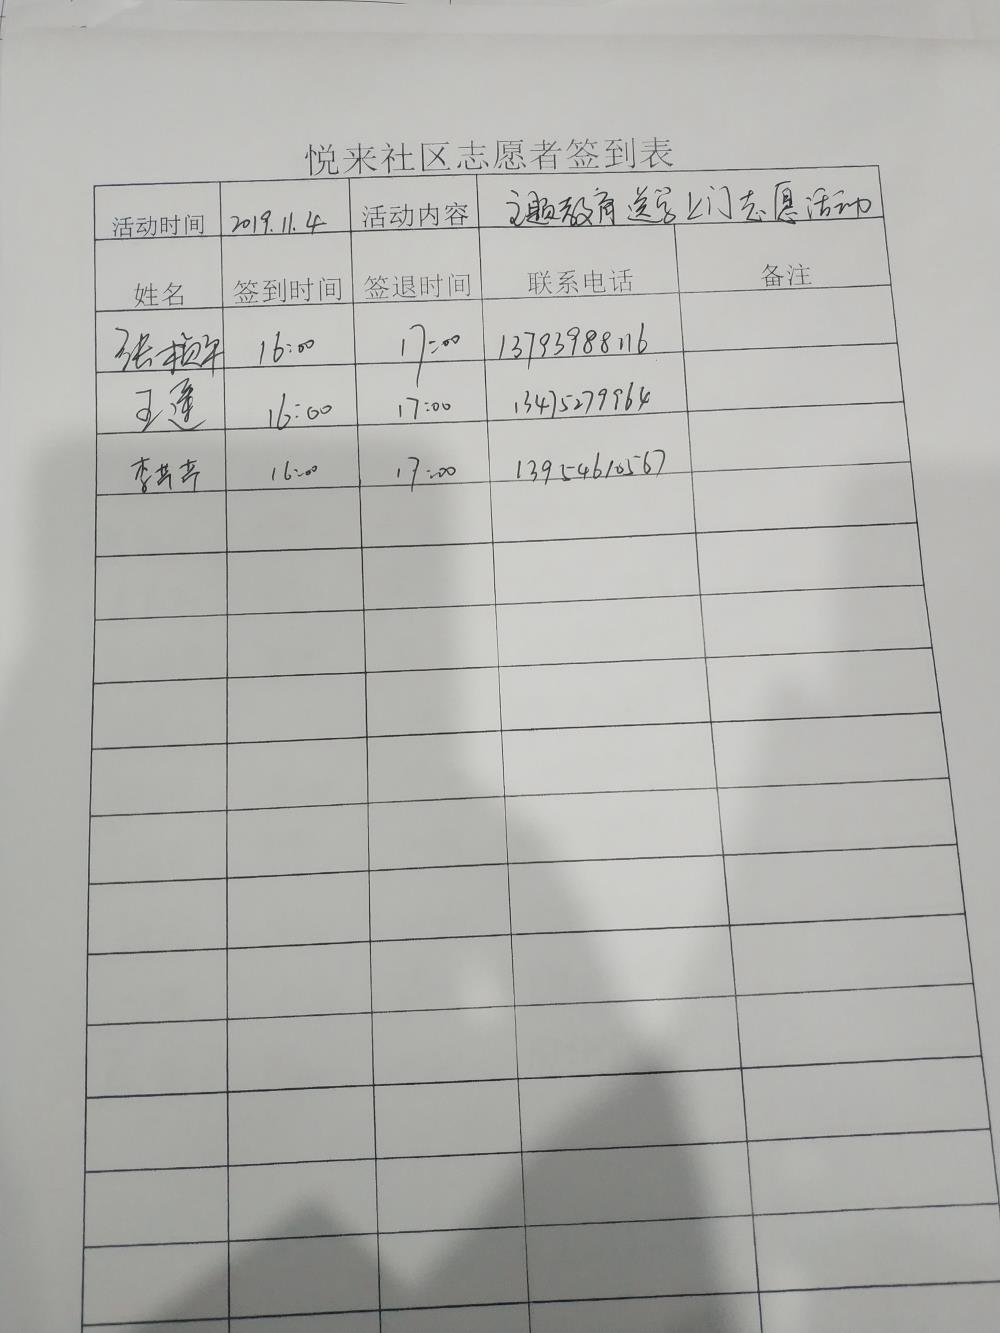 悦来社区志愿者签到表
活动时间 2019.11.4 活动内容 主题教育送学上门志愿活动
姓名 签到时间 签退时间 联系电话 备注
张 16:00 17:00 13793988116
王莲 16:00 17:00 13475279964
李芸芸 16:00 17:00 13954610567